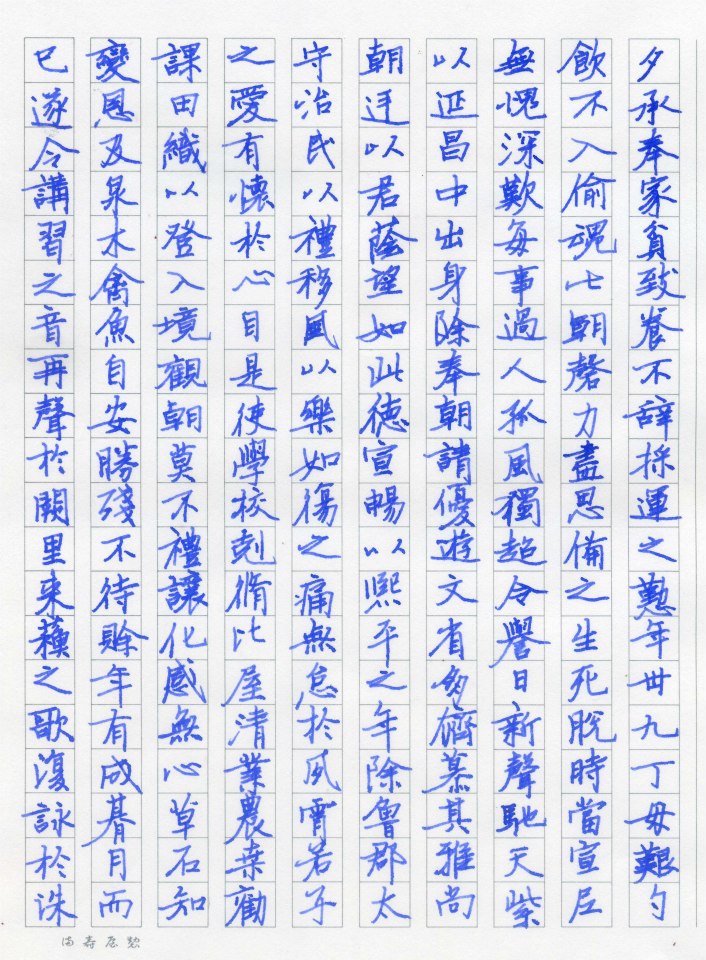 夕承奉家貧致養不辭採運之懃年卅九丁母艱勺
飲不入偷魂七朝磬力盡思備之生死脫時當宣尼
無愧深歎每事過人孤風獨超令譽日新聲馳天紫
以延昌中出身除奉朝請優遊文省儕慕其雅尚
朝廷以君蔭望如此德宣暢以熙平之年除魯郡太
守治民以禮移風以樂如傷之痛無怠於夙宵若子
之愛有懷於心目是使學校剋脩比屋清業農桒勸
課田織以登入境觀朝莫不禮讓化感無心草石知
變恩及泉木禽魚自安勝殘不待賒年有成朞月而
已遂令講習之音再聲於闕里来蘓之歌復詠於洙
満寿屋製